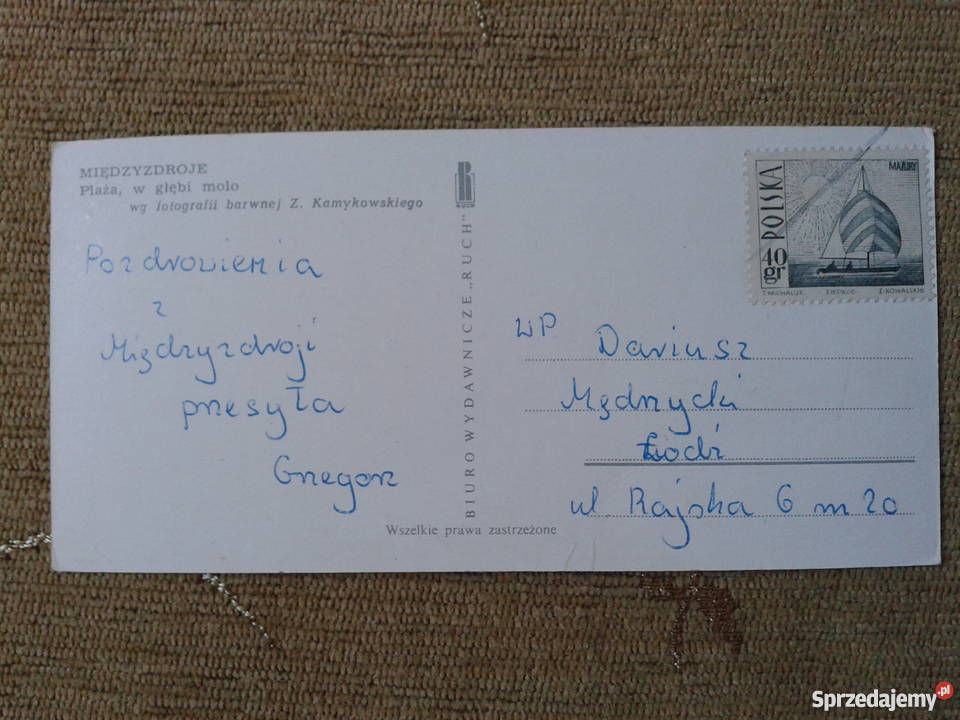 MIĘDZYZDROJE
Plaża, w głębi molo
wg fotografii barwnej Z. Kamykowskiego
Pozdrowienia
z
Międzyzdroji
przesyła
Grzegorz
BIURO WYDAWNICZE „RUCH"
RUCH
Wszelkie prawa zastrzeżone
POLSKA
MAZURY
40 gr
T. MICHALUK
Z. KOWALSKI
WP Dariusz
Mędrzycki
Łodź
ul Rajska 6 m 20
Sprzedajemy.pl